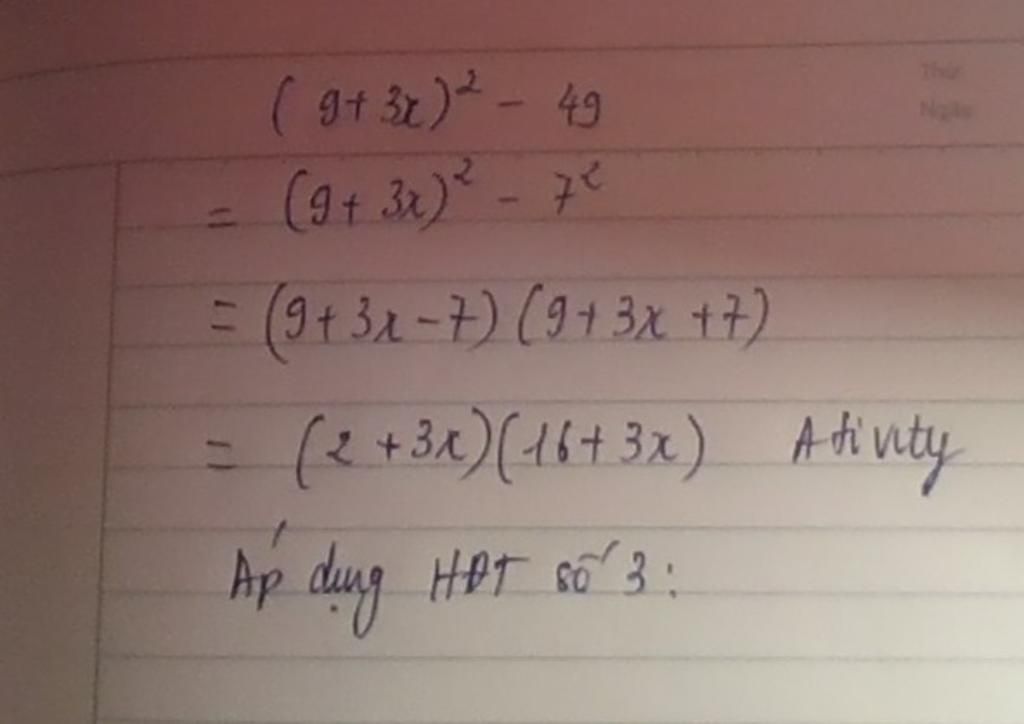 Thứ
Ngày
( 9+ 3x)² - 49
= (9+ 3x)² - 7²
= (9+3x-7) (9+3x+7)
= (2 +3x)(16+3x) Ativity
Áp dụng HĐT số 3: